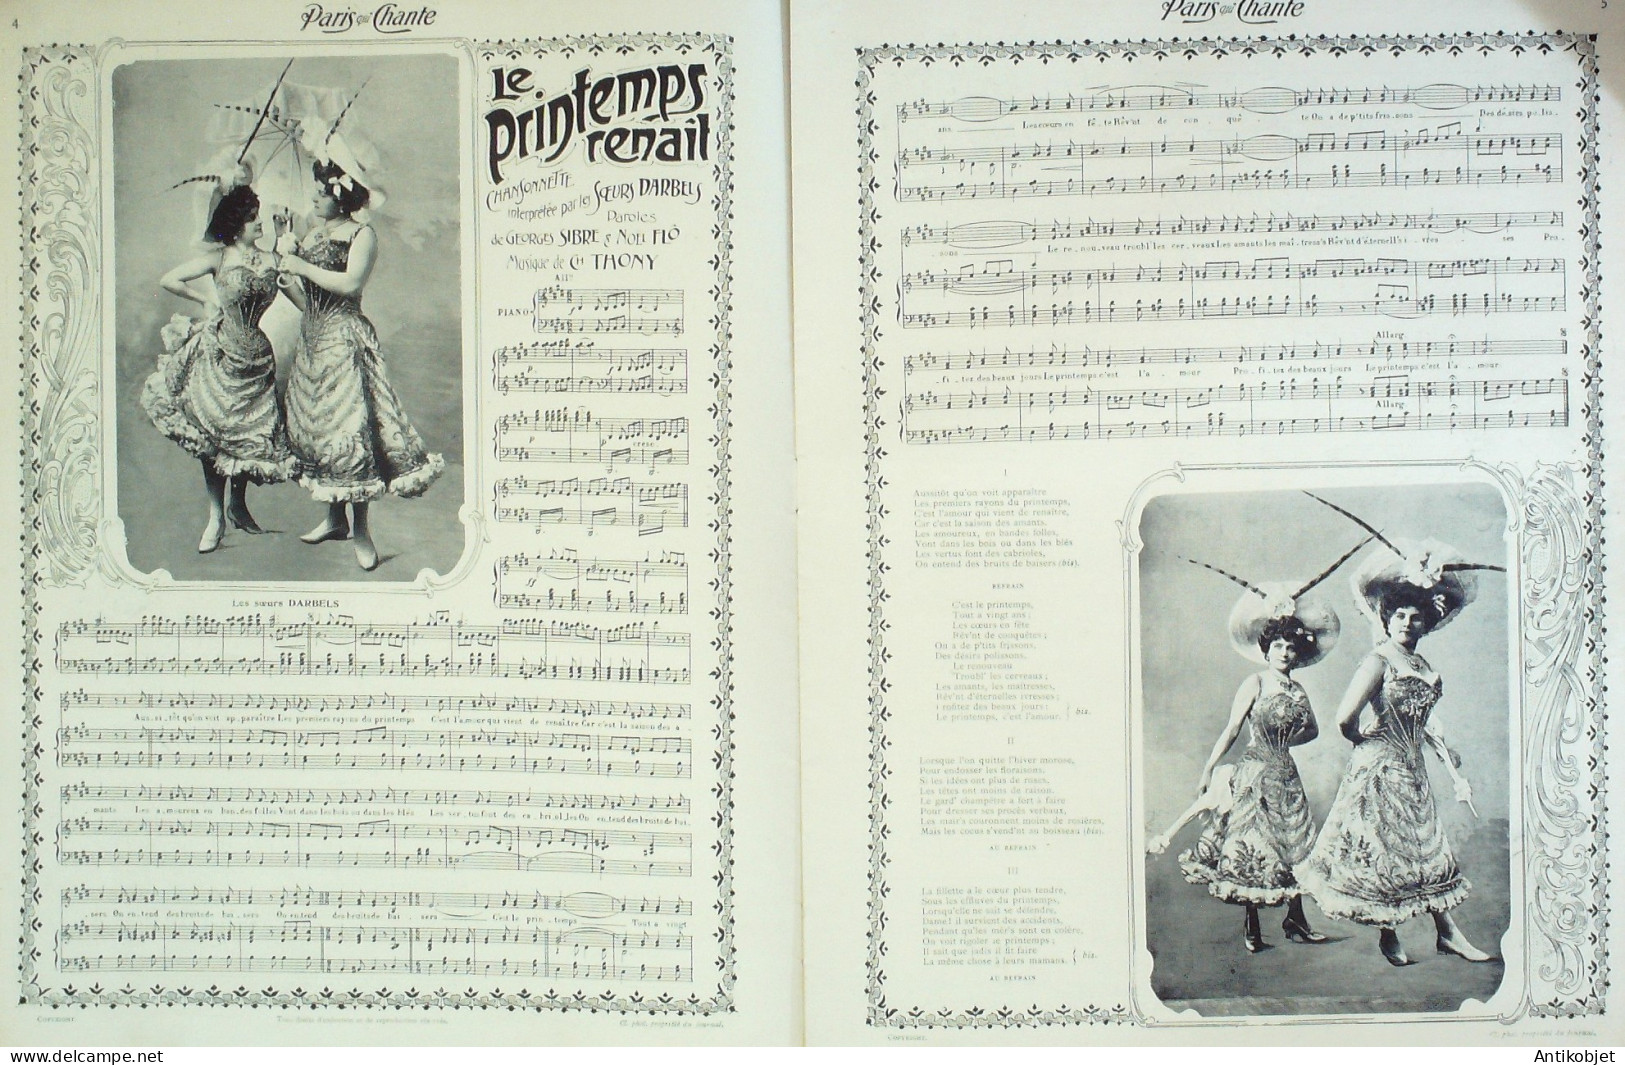 4
Paris qui Chante
Le
printemps
renaît
CHANSONNETTE
interprétée par les SŒURS DARBELS
Paroles
de GEORGES SIBRE & NOLI FLÔ
Musique de CH THONY
All^tto
PIANO
p
cresc.
ff
Les sœurs DARBELS
Aus.si.tôt qu'on voit ap.paraître Les premiers rayons du printemps C'est l'amour qui vient de renaître Car c'est la saison des a.
mants Les a.moureux en ban.des folles Vont dans les bois ou dans les blés Les ver.tus font des ca.briol.les On en.tend des bruits de bai.
sers On en.tend des bruits de bai.sers On en.tend des bruits de bai.sers C'est le prin.temps Tout a vingt
COPYRIGHT.
Cl. phot. propriété du journal.
Paris qui Chante
5
ans Les cœurs en fê.te Rêv'nt de con.quê.te On a de p'tits fris.sons Des dé.sirs po.lis.
sons Le re.nou.veau troubl' les cer.veaux Les amants les maî.tress's Rêv'nt d'éternell's i.vres.ses Pro.
Allarg
fi.tez des beaux jours Le printemps c'est l'a.mour Pro.fi.tez des beaux jours Le printemps c'est l'a.mour
Allarg
I
Aussitôt qu'on voit apparaître
Les premiers rayons du printemps,
C'est l'amour qui vient de renaître,
Car c'est la saison des amants.
Les amoureux, en bandes folles,
Vont dans les bois ou dans les blés
Les vertus font des cabrioles,
On entend des bruits de baisers (bis).
REFRAIN
C'est le printemps,
Tout a vingt ans;
Les cœurs en fête
Rêv'nt de conquêtes;
On a de p'tits frissons,
Des désirs polissons,
Le renouveau
Troubl' les cerveaux;
Les amants, les maîtresses,
Rêv'nt d'éternelles ivresses;
Profitez des beaux jours:
Le printemps, c'est l'amour. } bis.
II
Lorsque l'on quitte l'hiver morose,
Pour endosser les floraisons,
Si les idées ont plus de roses,
Les têtes ont moins de raison.
Le gard' champêtre a fort à faire
Pour dresser ses procès verbaux,
Les mair's couronnent moins de rosières,
Mais les cocus s'vend'nt au boisseau (bis).
AU REFRAIN
III
La fillette a le cœur plus tendre,
Sous les effluves du printemps,
Lorsqu'elle ne sait se défendre,
Dame! il survient des accidents,
Pendant qu'les mèr's sont en colère,
On voit rigoler le printemps;
Il sait que jadis il fit faire
La même chose à leurs mamans. } bis.
AU REFRAIN
COPYRIGHT.
Cl. phot. propriété du journal.
Antikobjet